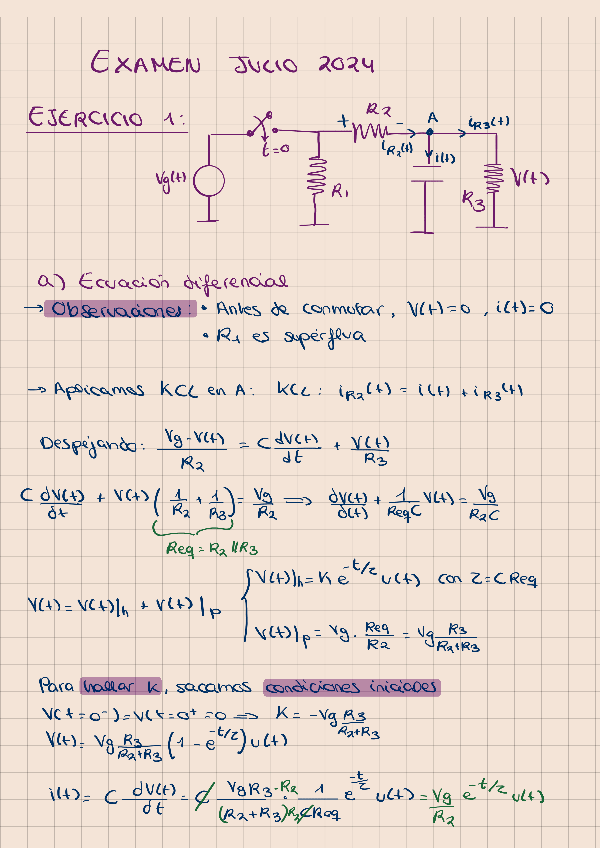 EXAMEN JULIO 2024
EJERCICIO 1:
Vg(t)
t=0
R1
+ R2 -
iR2(t)
A
i(t)
iR3(t)
R3
V(t)
a) Ecuación diferencial
→ Observaciones: • Antes de conmutar, V(t)=0, i(t)=0
• R1 es supérflua
→ Aplicamos KCL en A: KCL: iR2(t) = i(t) + iR3(t)
Despejando: (Vg-V(t))/R2 = C dV(t)/dt + V(t)/R3
C dV(t)/dt + V(t) (1/R2 + 1/R3) = Vg/R2 ⟹ dV(t)/d(t) + 1/(ReqC) V(t) = Vg/(R2C)
Req = R2 || R3
V(t) = V(t)|h + V(t)|p { V(t)|h = K e^(-t/τ) u(t) con τ = C Req
V(t)|p = Vg · Req/R2 = Vg R3/(R2+R3)
Para hallar K, sacamos condiciones iniciales
V(t=0⁻) = V(t=0⁺ = 0 ⟹ K = -Vg R3/(R2+R3)
V(t) = Vg R3/(R2+R3) (1 - e^(-t/τ)) u(t)
i(t) = C dV(t)/dt = C VgR3·R2/((R2+R3)R2) · 1/(C Req) e^(-t/τ) u(t) = Vg/R2 e^(-t/τ) u(t)